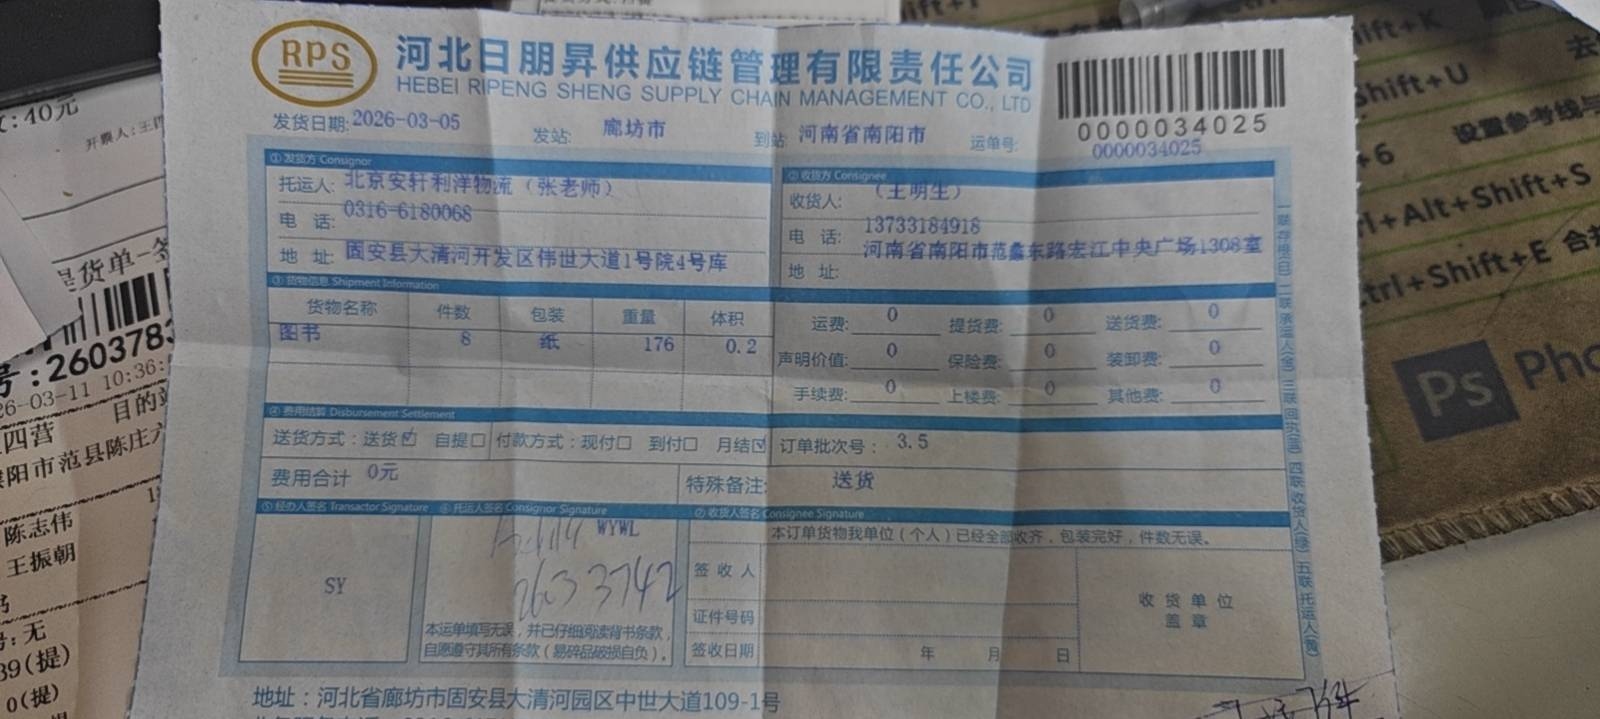 RPS
河北日朋昇供应链管理有限责任公司
HEBEI RIPENG SHENG SUPPLY CHAIN MANAGEMENT CO., LTD
0000034025
发货日期: 2026-03-05 发站: 廊坊市 到站: 河南省南阳市 运单号: 0000034025
①发货方 Consignor
托运人: 北京安轩利洋物流（张老师）
电 话: 0316-6180068
地 址: 固安县大清河开发区伟世大道1号院4号库
②收货方 Consignee
收货人: （王明生）
电 话: 13733184918
地 址: 河南省南阳市范蠡东路宏江中央广场1308室
③货物信息 Shipment Information
货物名称 件数 包装 重量 体积
图书 8 纸 176 0.2
运费: 0 提货费: 0 送货费: 0
声明价值: 0 保险费: 0 装卸费: 0
手续费: 0 上楼费: 0 其他费: 0
④费用结算 Disbursement Settlement
送货方式：送货☑ 自提□ 付款方式：现付□ 到付□ 月结☑ 订单批次号： 3.5
费用合计 0元 特殊备注: 送货
⑤经办人签名 Transactor Signature ⑥托运人签名 Consignor Signature ⑦收货人签名 Consignee Signature
SY
WYWL
2603 3742
本运单填写无误，并已仔细阅读背书条款，
自愿遵守其所有条款（易碎品破损自负）。
本订单货物我单位（个人）已经全部收齐，包装完好，件数无误。
签 收 人
证件号码
签收日期 年 月 日
收 货 单 位
盖 章
地址：河北省廊坊市固安县大清河园区中世大道109-1号
:40元
开票人:王四
号:260378
26-03-11 10:36:
目的站
四营
阳市范县陈庄
陈志伟
王振朝
号:无
39(提)
0(提)
Shift+K
Shift+U
设置参考线与
+6
Ctrl+Alt+Shift+S
Ctrl+Shift+E 合并
Ps Pho